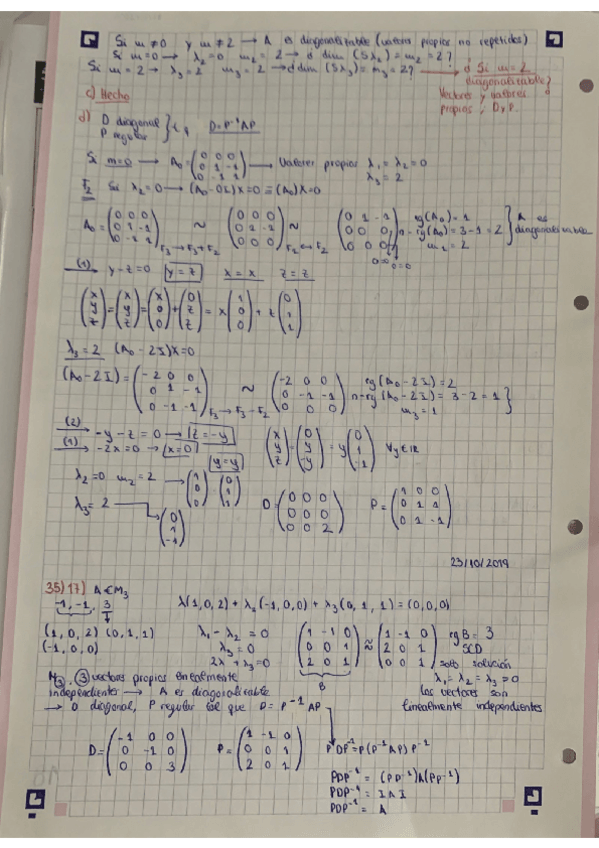 Si m ≠ 0 y m ≠ 2 → A es diagonalizable (valores propios no repetidos)
Si m = 0 → λ₂ = 0 m₂ = 2 → d dim (Sλ₂) = m₂ = 2?
Si m = 2 → λ₃ = 2 m₃ = 2 → d dim (Sλ₃) = m₃ = 2? → d Si m = 2
diagonalizable?
Vectores y valores
propios, D y P.
c) Hecho
d) D diagonal
P regular } t.q D = P⁻¹AP
Si m=0 → A₀ = (0 0 0 / 0 1 -1 / 0 -1 1) → Valores propios λ₁ = λ₂ = 0
λ₃ = 2
Si λ₂ = 0 → (A₀ - 0I)X = 0 ≡ (A₀)X = 0
A₀ = (0 0 0 / 0 1 -1 / 0 -1 1) F₃ → F₃ + F₂ ~ (0 0 0 / 0 1 -1 / 0 0 0) F₂ ↔ F₁ ~ (0 1 -1 / 0 0 0 / 0 0 0) 0=0 0=0
rg(A₀) = 1
n - rg(A₀) = 3 - 1 = 2
m₂ = 2 } A es diagonalizable
(1) → y - z = 0 y = z x = x z = z
(x / y / z) = (x / y / z) = (x / 0 / 0) + (0 / z / z) = x (1 / 0 / 0) + z (0 / 1 / 1)
λ₃ = 2 (A₀ - 2I)X = 0
(A₀ - 2I) = (-2 0 0 / 0 1 -1 / 0 -1 -1) F₃ → F₃ - F₂ ~ (-2 0 0 / 0 -1 -1 / 0 0 0)
rg(A₀ - 2I) = 2
n - rg(A₀ - 2I) = 3 - 2 = 1
m₃ = 1 }
(2) → -y - z = 0 → z = -y
(1) → -2x = 0 → x = 0
y = y
(x / y / z) = (0 / y / -y) = y (0 / 1 / -1) ∀y ∈ ℝ
λ₂ = 0 m₂ = 2 → (1 / 0 / 0) (0 / 1 / 1)
λ₃ = 2 → (0 / 1 / -1)
D = (0 0 0 / 0 0 0 / 0 0 2) P = (1 0 0 / 0 1 1 / 0 1 -1)
23/10/2019
35) 17) A ∈ M₃
-1, -1, 3
(1, 0, 2) (0, 1, 1)
(-1, 0, 0)
λ(1, 0, 2) + λ₂(-1, 0, 0) + λ₃(0, 1, 1) = (0, 0, 0)
λ₁ - λ₂ = 0
λ₃ = 0
2λ + λ₃ = 0
(1 -1 0 / 0 0 1 / 2 0 1) ≈ (1 -1 0 / 2 0 1 / 0 0 1)
B
rg B = 3
SCD
solo solución
λ₁ = λ₂ = λ₃ = 0
Los vectores son
linealmente independientes
3 vectores propios linealmente
independientes → A es diagonalizable
→ D diagonal, P regular tal que D = P⁻¹AP
D = (-1 0 0 / 0 -1 0 / 0 0 3) P = (1 -1 0 / 0 0 1 / 2 0 1)
PDP⁻¹ = P(P⁻¹AP)P⁻¹
PDP⁻¹ = (PP⁻¹)A(PP⁻¹)
PDP⁻¹ = I A I
PDP⁻¹ = A